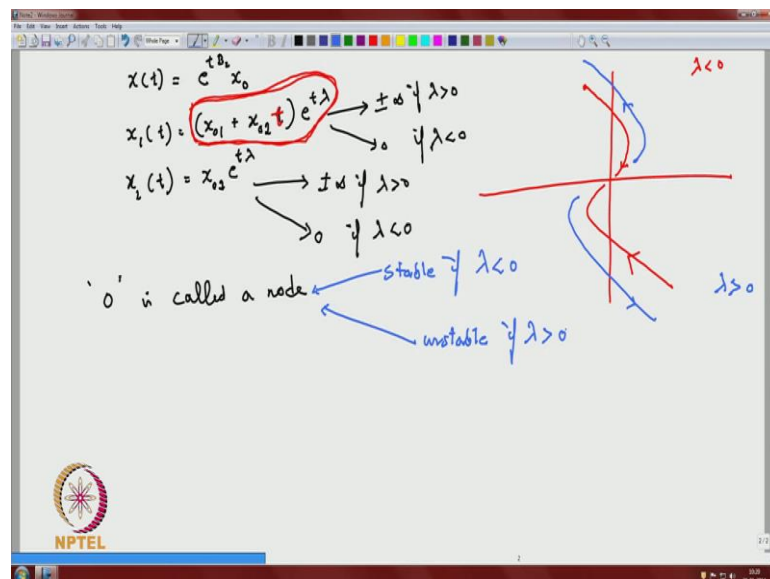 Note2 - Windows Journal
File Edit View Insert Actions Tools Help
Whole Page
B I
x(t) = e^{tB_2} x_0
λ<0
x_1(t) = (x_{01} + x_{02} t) e^{tλ} → ± ∞ if λ>0
→ 0 if λ<0
x_2(t) = x_{02} e^{tλ} → ± ∞ if λ>0
→ 0 if λ<0
'0' is called a node
stable if λ<0
unstable if λ>0
λ>0
NPTEL
2
2/2
10:20